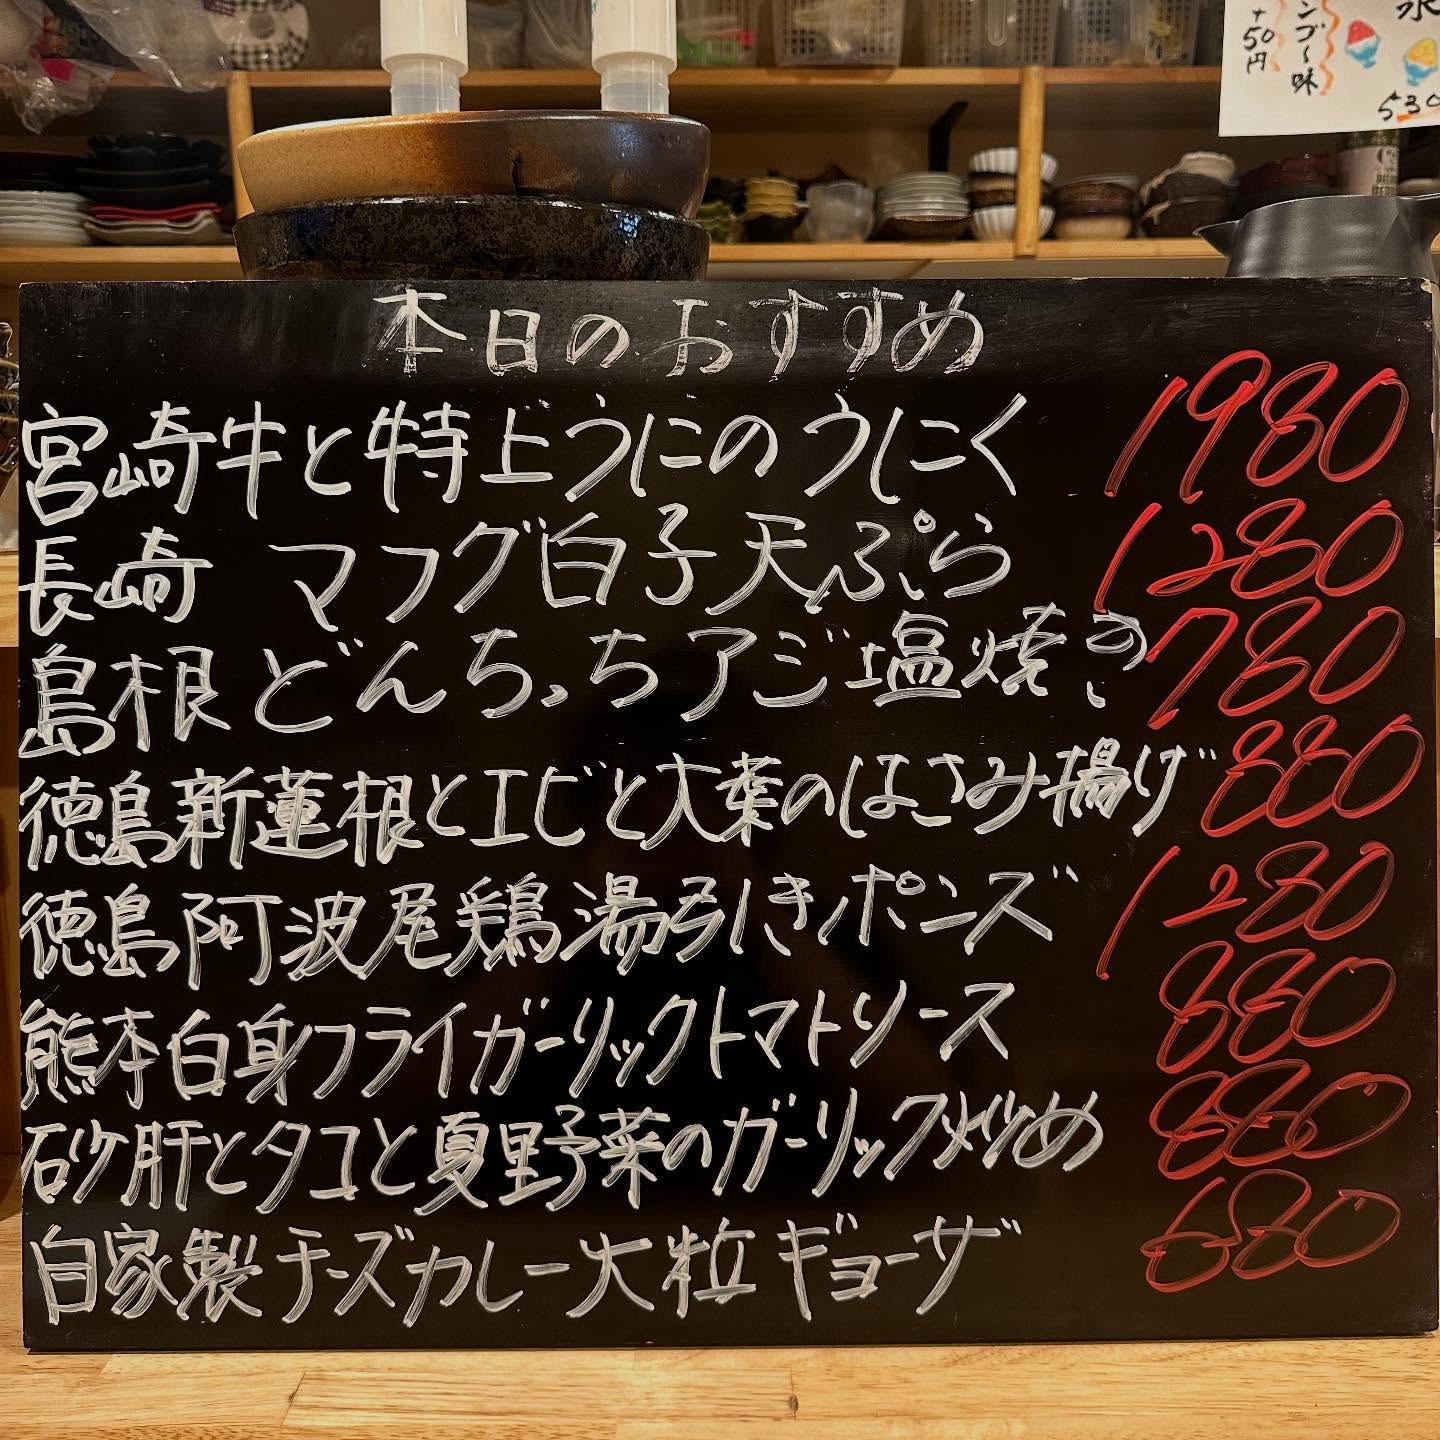 ンゴー味
+50円
氷
530
本日のおすすめ
宮崎牛と特上うにのうにく 1980
長崎 マフグ白子天ぷら 1280
島根 どんちっちアジ塩焼き 780
徳島新蓮根とエビと大葉のはさみ揚げ 880
徳島阿波尾鶏湯引きポン酢 1280
熊本白身フライガーリックトマトソース 880
砂肝とタコと夏野菜のガーリック炒め 880
自家製チーズカレー大粒ギョーザ 680